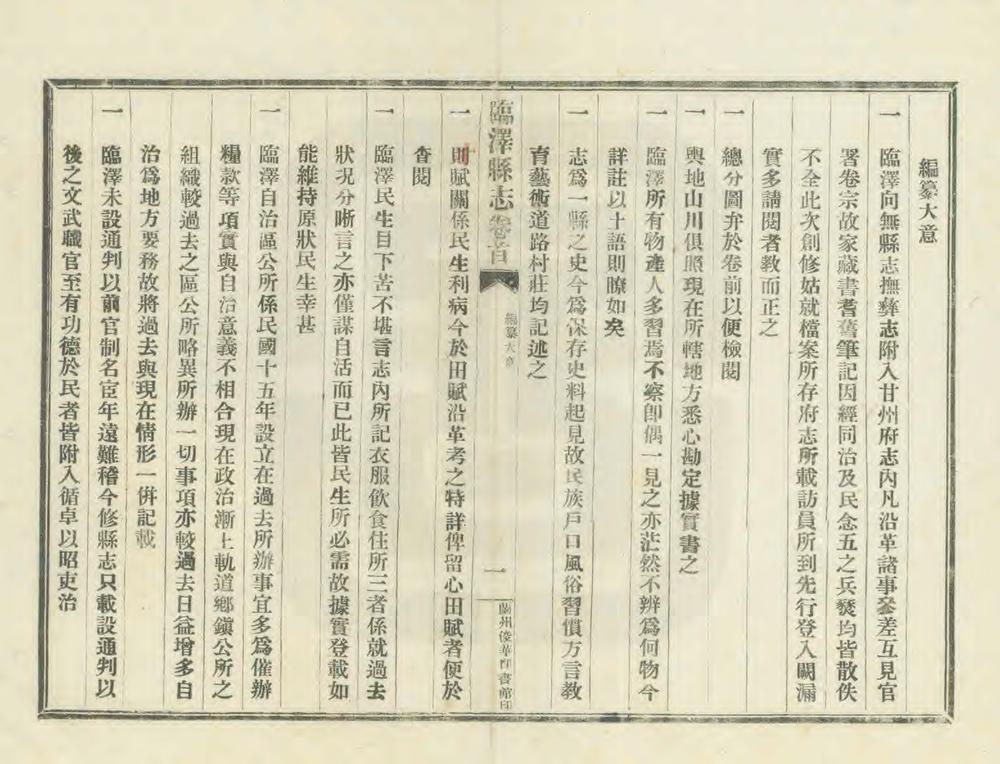 編纂大意
一 臨澤向無縣志撫彝志附入甘州府志內凡沿革諸事叅差互見官
署卷宗故家藏書耆舊筆記因經同治及民念五之兵燹均皆散佚
不全此次創修姑就檔案所存府志所載訪員所到先行登入闕漏
實多請閱者教而正之
一 總分圖弁於卷前以便檢閱
一 輿地山川俱照現在所轄地方悉心勘定據實書之
一 臨澤所有物產人多習焉不察卽偶一見之亦茫然不辨爲何物今
詳註以土語則瞭如矣
一 志爲一縣之史今爲保存史料起見故民族戶口風俗習慣方言教
育藝術道路村莊均記述之
臨澤縣志 卷首
編纂大意
一
蘭州俊華印書館印
一 則賦關係民生利病今於田賦沿革考之特詳俾留心田賦者便於
查閱
一 臨澤民生目下苦不堪言志內所記衣服飲食住所三者係就過去
狀況分晰言之亦僅謀自活而已此皆民生所必需故據實登載如
能維持原狀民生幸甚
一 臨澤自治區公所係民國十五年設立在過去所辦事宜多爲催辦
糧款等項實與自治意義不相合現在政治漸上軌道鄉鎭公所之
組織較過去之區公所略異所辦一切事項亦較過去日益增多自
治爲地方要務故將過去與現在情形一倂記載
一 臨澤未設通判以前官制名宦年遠難稽今修縣志只載設通判以
後之文武職官至有功德於民者皆附入循卓以昭吏治